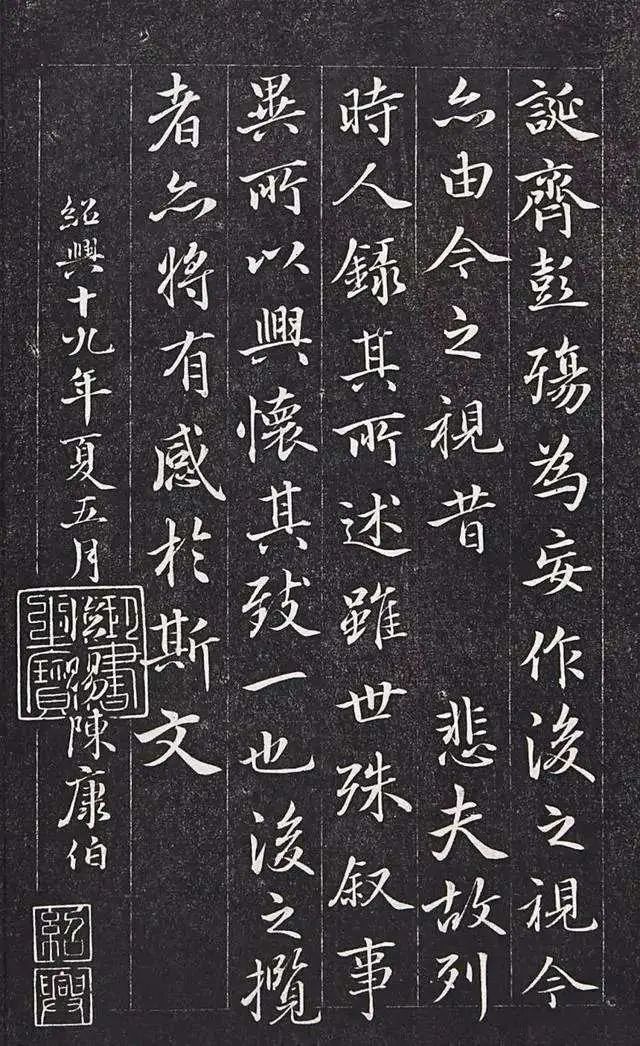 誕齊彭殤為妄作後之視今
亦由今之視昔 悲夫故列
時人錄其所述雖世殊叙事
異所以興懷其致一也後之攬
者亦將有感於斯文
紹興十九年夏五月 陽陳康伯
御書之寶
紹興